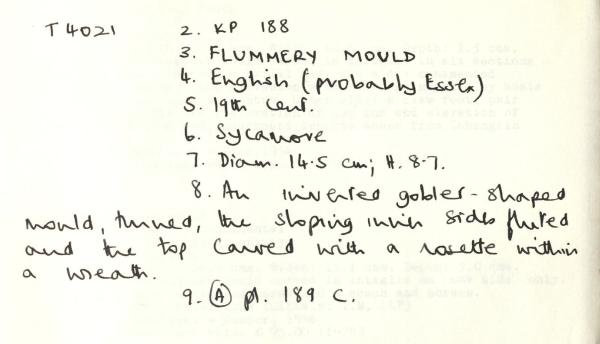 T4021 2. KP 188
3. FLUMMERY MOULD
4. English (probably Essex)
5. 19th Cent.
6. Sycamore
7. Diam. 14.5 cm; H. 8.7.
8. An inverted goblet-shaped
mould, turned, the sloping inner sides fluted
and the top carved with a rosette within
a wreath.
9. Ⓐ pl. 189 C.